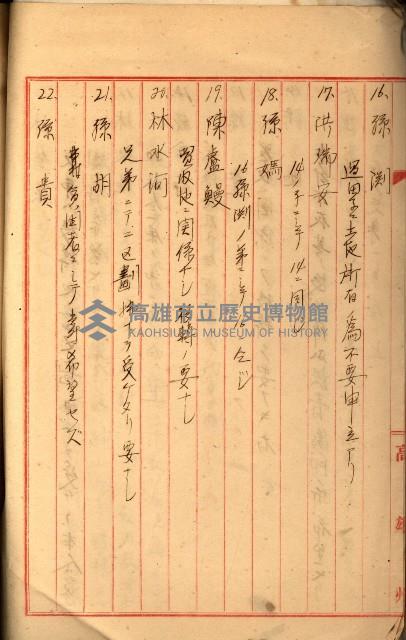 16. 孫渕
過田ニ土地所有為不要申立アリ
17. 洪瑞安
14ノ子ニシテ 14ニ同シ
18. 孫嬀
16孫渕ノ弟ニシテ 16ト仝シ
19. 陳盧鰻
買収地ニ関係ナシ 移轉ノ要ナシ
20. 林水河
兄弟ニテ区劃 ヲ受ケタリ要ナシ
21. 孫排
22. 孫貴
貧困者ニシテ 希望セズ
高雄州
高雄市立歷史博物館
KAOHSIUNG MUSEUM OF HISTORY